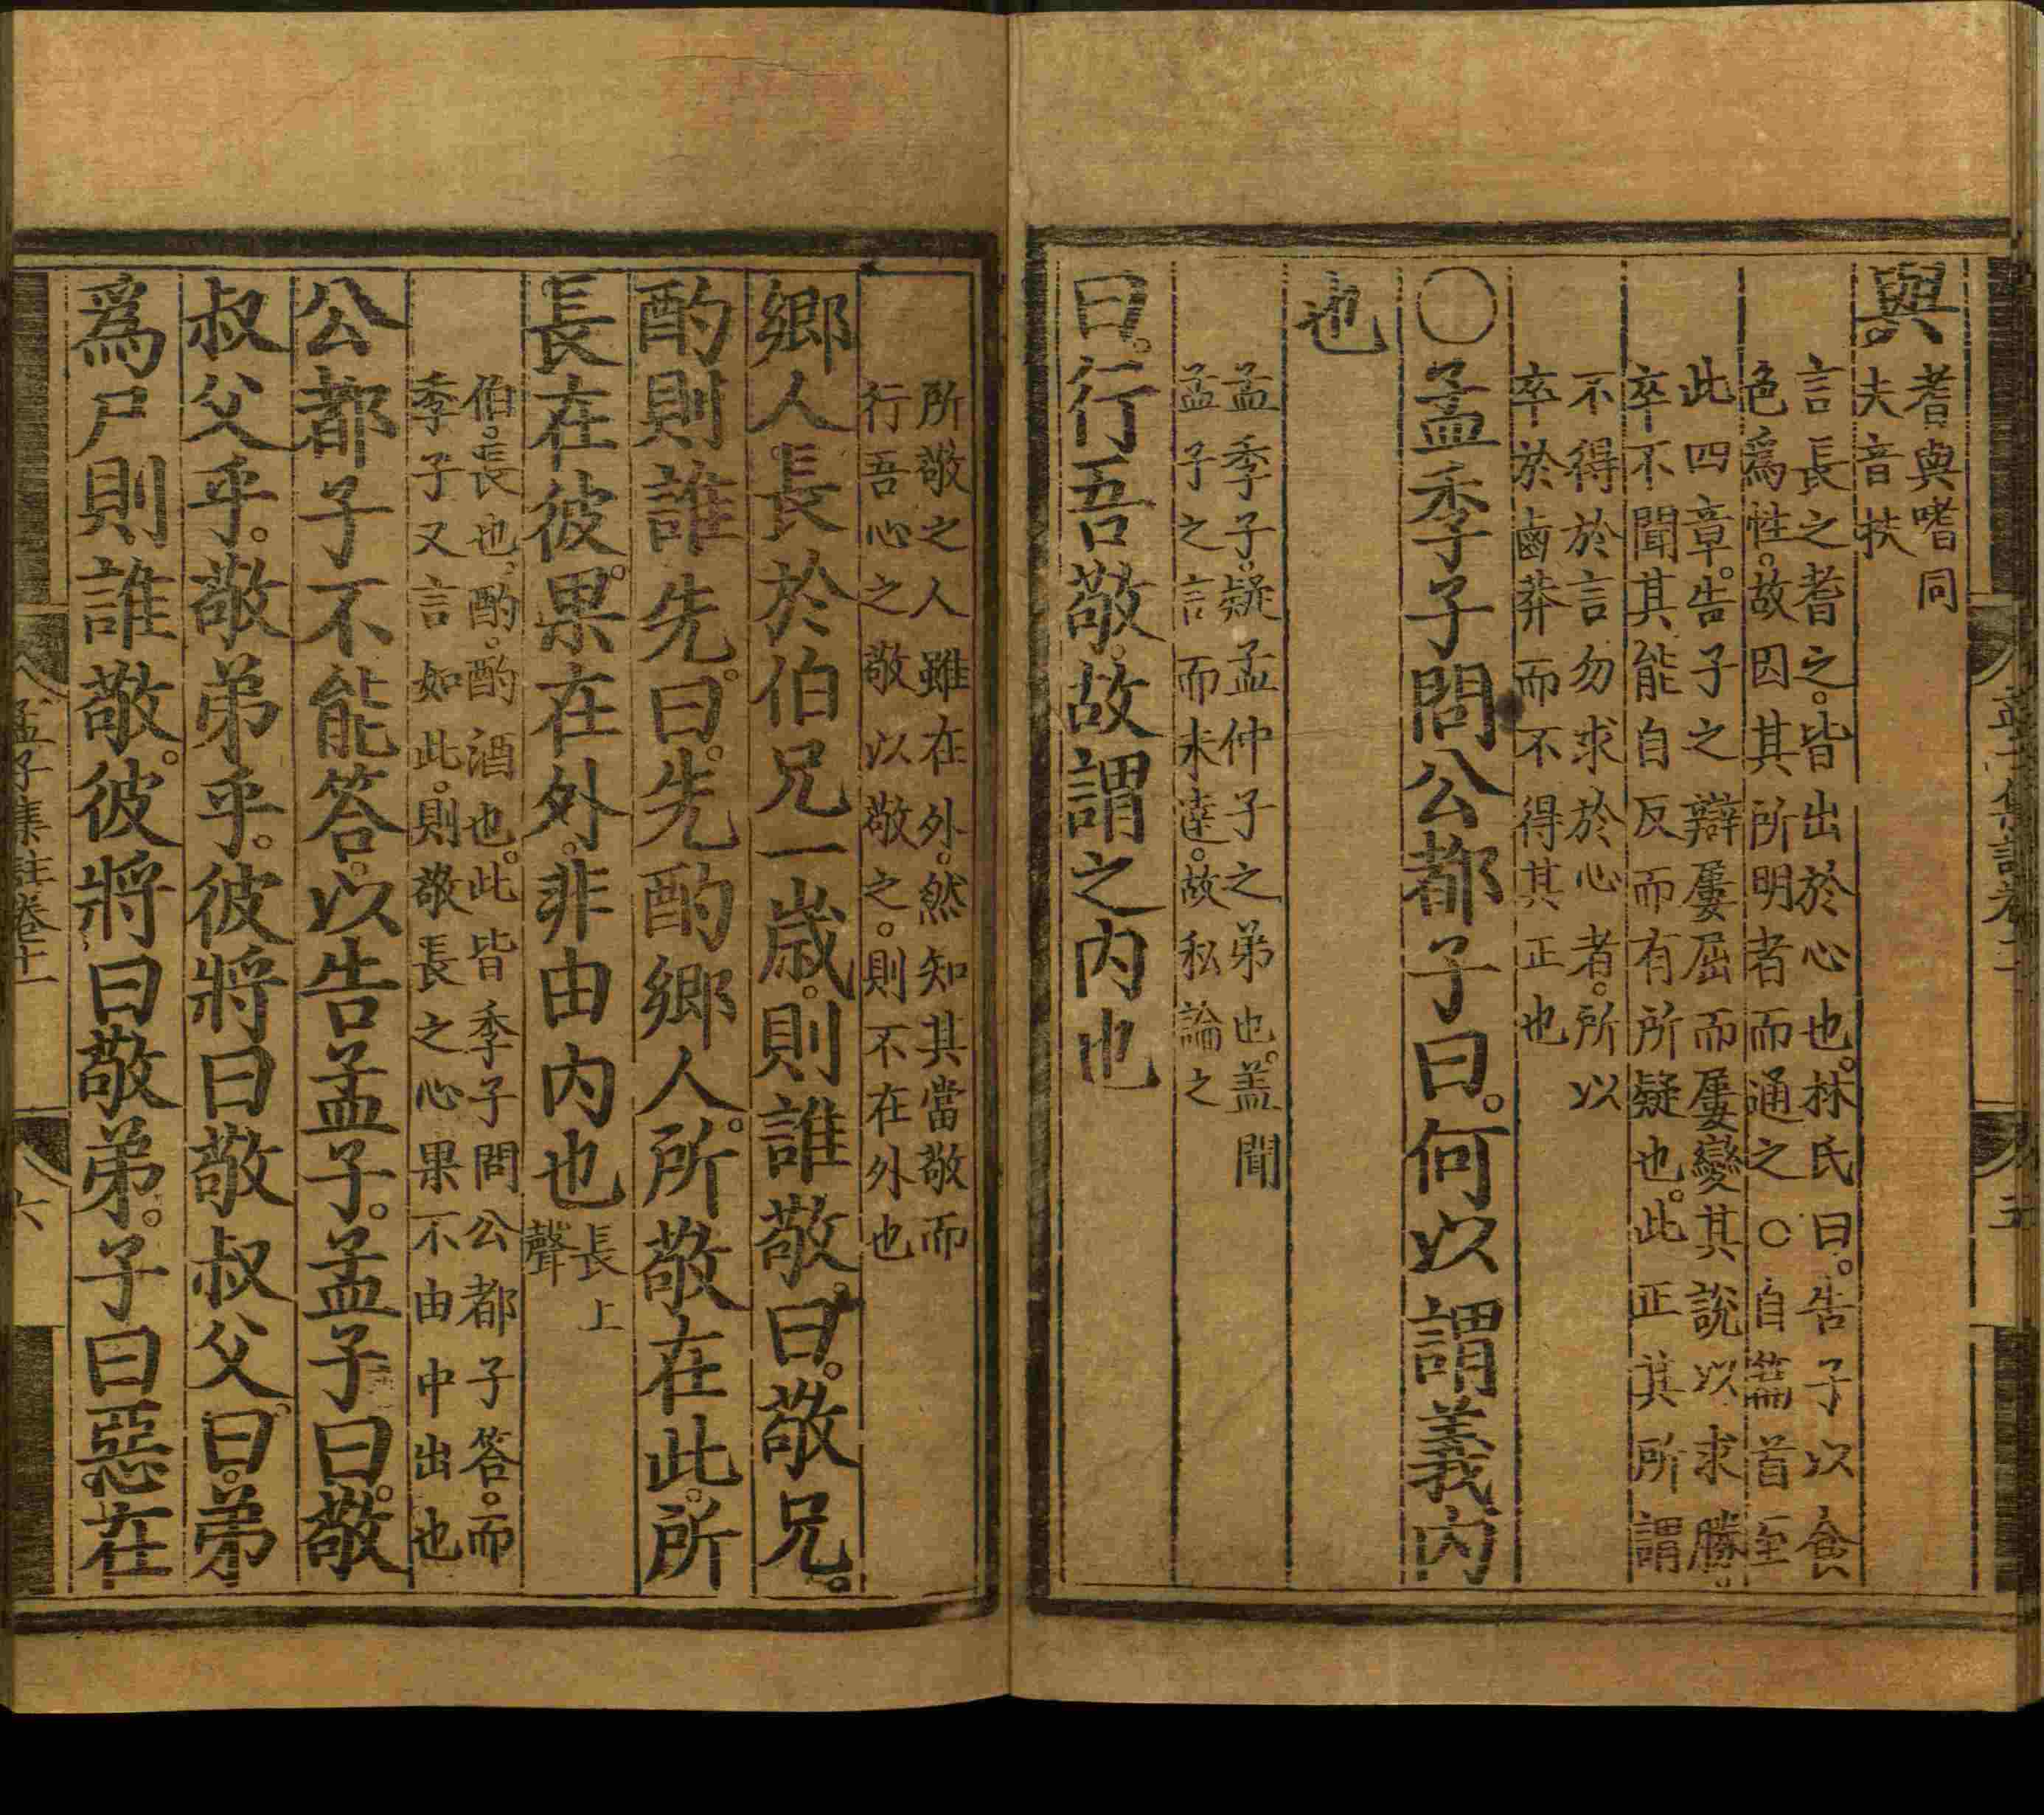 與
耆與嗜同
夫音扶
言長之耆之。皆出於心也。林氏曰。告子以食
色爲性。故因其所明者而通之○自篇首至
此四章。告子之辯屢屈而屢變其說以求勝。
卒不聞其能自反而有所疑也。此正其所謂
不得於言勿求於心者。所以
卒於鹵莽而不得其正也
○孟季子問公都子曰。何以謂義內
也
孟季子。疑孟仲子之弟也。盖聞
孟子之言而未達。故私論之
曰。行吾敬。故謂之內也
所敬之人雖在外。然知其當敬而
行吾心之敬以敬之。則不在外也
鄉人長於伯兄一歲。則誰敬。曰。敬兄。
酌則誰先。曰。先酌鄉人。所敬在此。所
長在彼。果在外。非由內也
長上
聲
伯。長也。酌。酌酒也。此皆季子問公都子答。而
季子又言如此。則敬長之心果不由中出也
公都子不能答。以告孟子。孟子曰。敬
叔父乎。敬弟乎。彼將曰敬叔父。曰。弟
爲尸則誰敬。彼將曰敬弟。子曰惡在
孟子集註卷十一
六